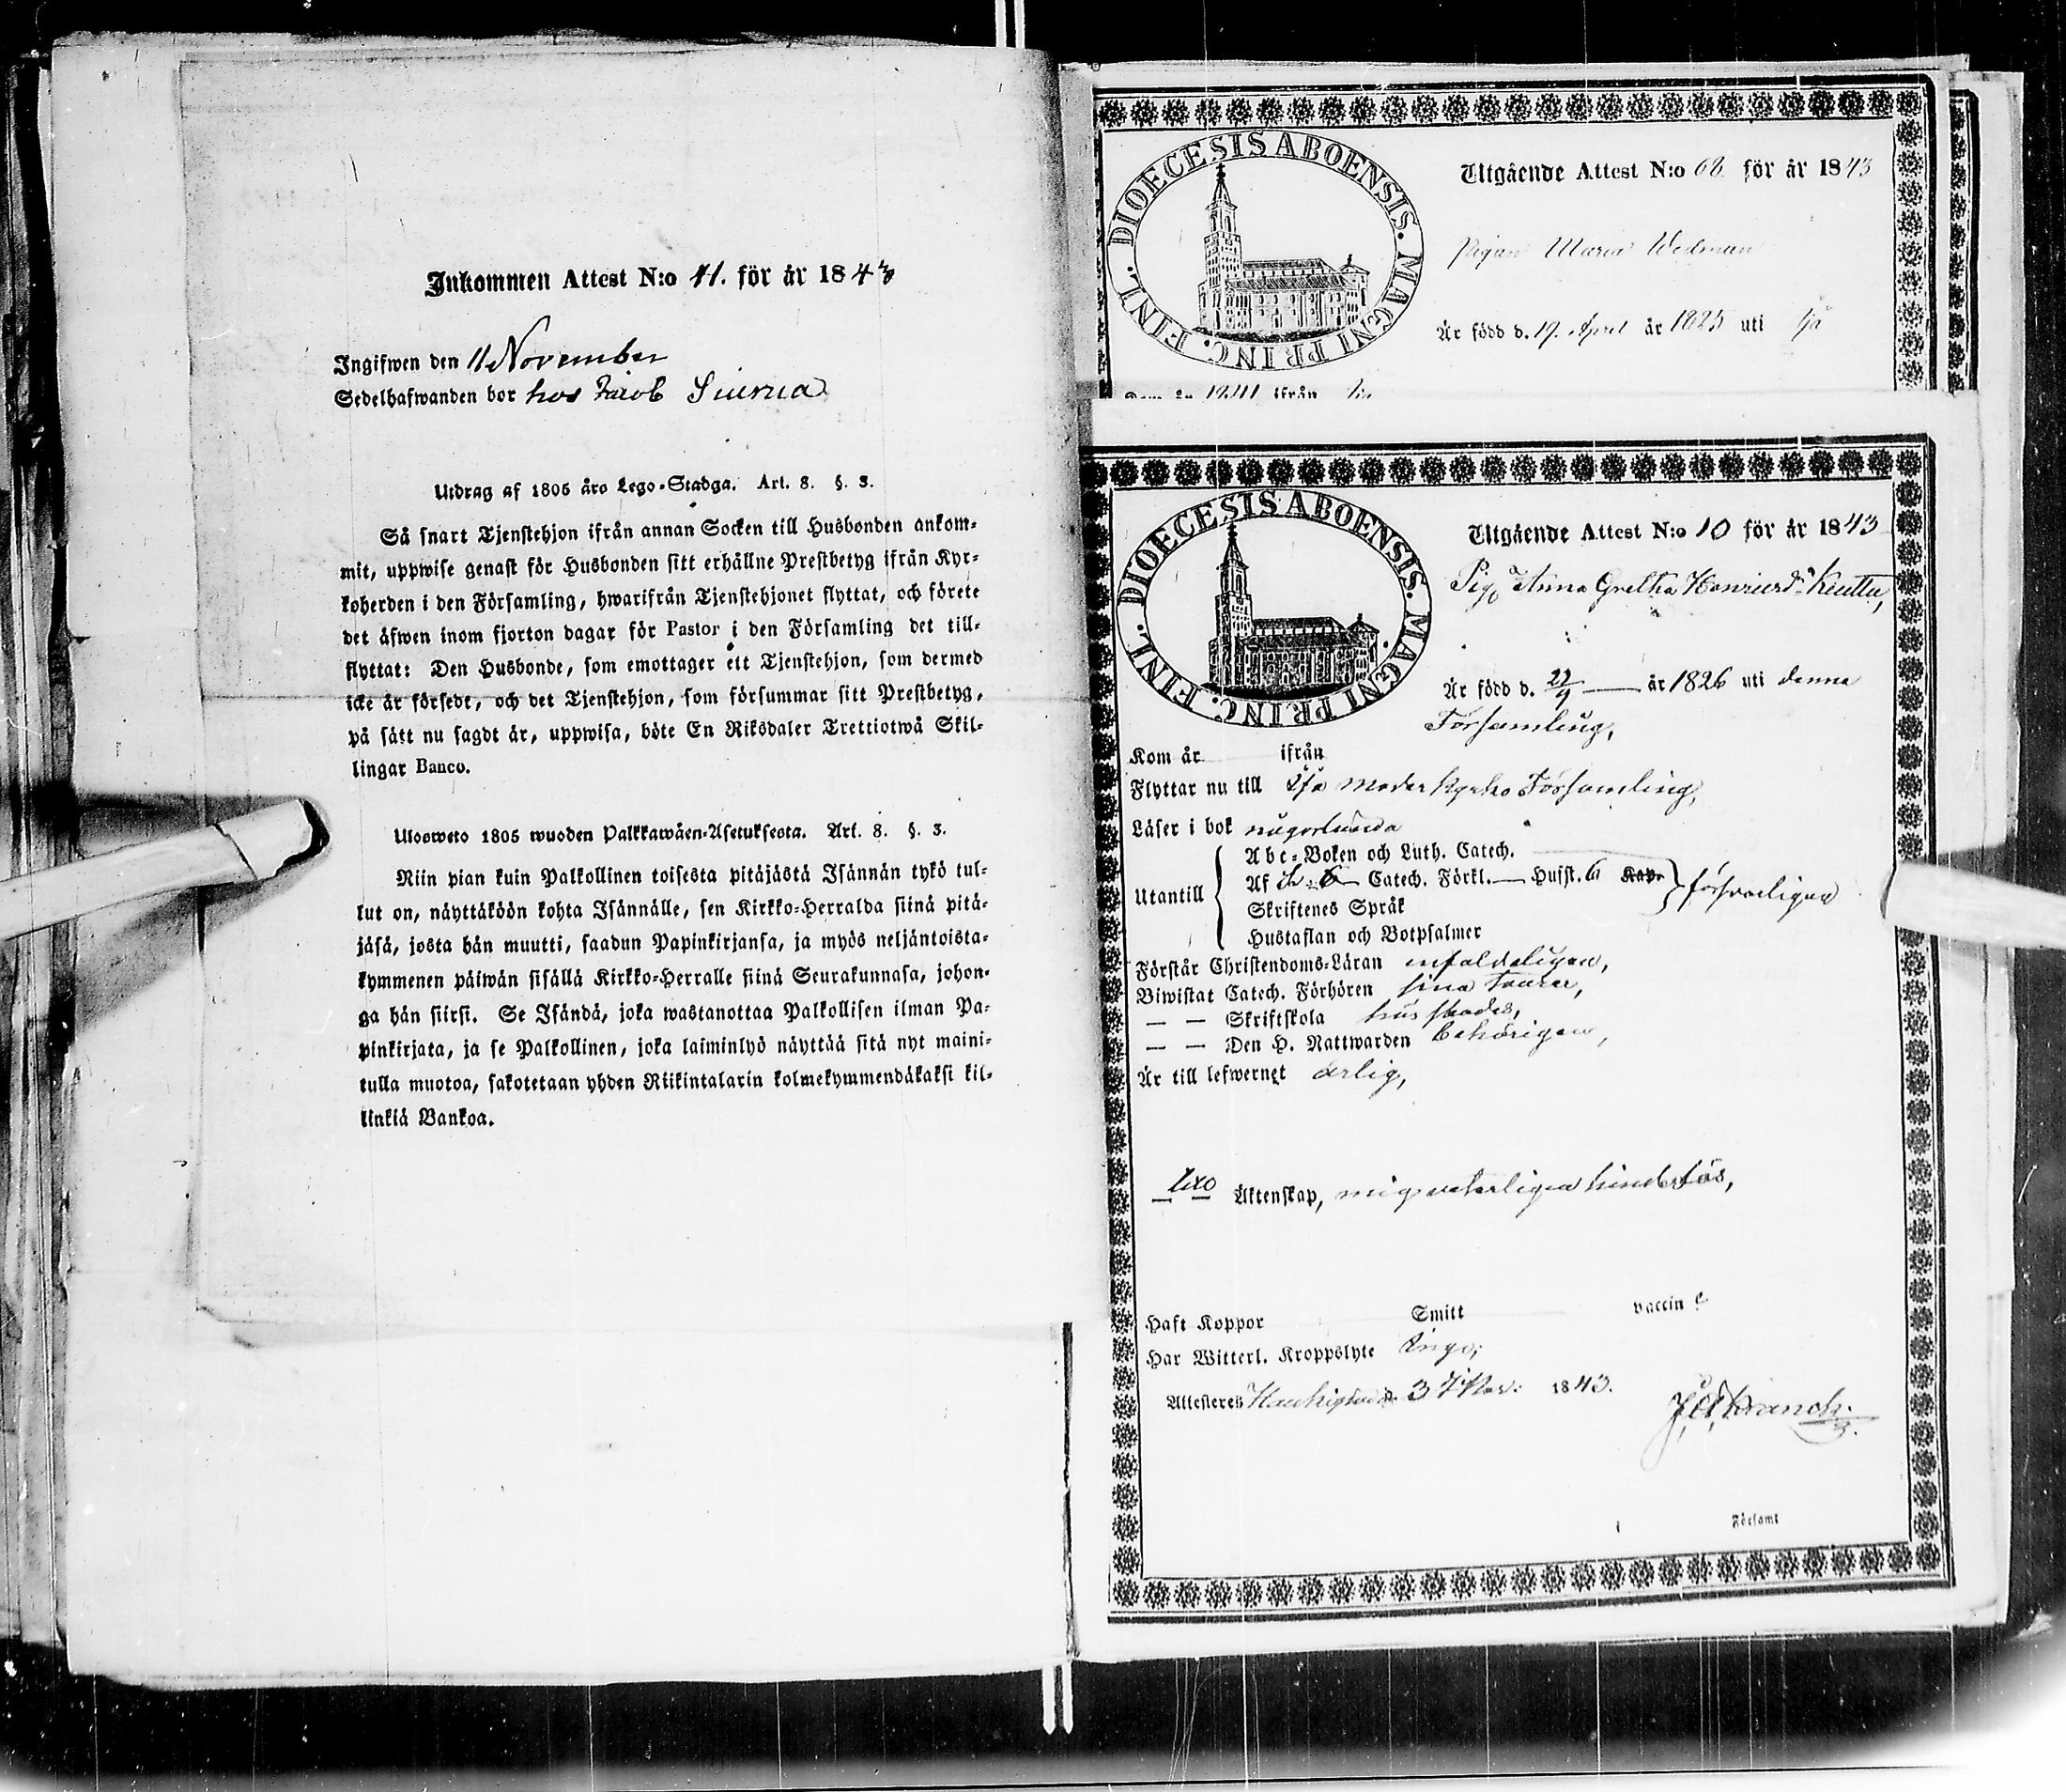 Inkommen Attest N:o 41. för år 1843
Ingifwen den 11 November
Sedelhafwanden bor hos Jacob Siurua
Utdrag af 1805 års Lego-Stadga. Art. 8. §. 3.
Så snart Tjenstehjon ifrån annan Socken till Husbonden ankom-
mit, uppwise genast för Husbonden sitt erhållne Prestbetyg ifrån Kyr-
koherden i den Församling, hwarifrån Tjenstehjonet flyttat, och förete
det äfwen inom fjorton dagar för Pastor i den Församling det till-
flyttat: Den Husbonde, som emottager ett Tjenstehjon, som dermed
icke är försedt, och det Tjenstehjon, som försummar sitt Prestbetyg,
på sätt nu sagdt är, uppwisa, böte En Riksdaler Trettiotwå Skil-
lingar Banco.
Ulosweto 1805 wuoden Palkkawäen-Asetuksesta. Art. 8. §. 3.
Niin pian kuin Palkollinen toisesta pitäjästä Isännän tykö tul-
lut on, näyttäköön kohta Isännälle, sen Kirkko-Herralda siinä pitä-
jäsä, josta hän muutti, saadun Papinkirjansa, ja myös neljäntoista-
kymmenen päiwän sisällä Kirkko-Herralle siinä Seurakunnasa, johon-
ga hän siirsi. Se Isändä, joka wastanottaa Palkollisen ilman Pa-
pinkirjata, ja se Palkollinen, joka laiminlyö näyttää sitä nyt maini-
tulla muotoa, sakotetaan yhden Riikintalarin kolmekymmendäkaksi kil-
linkiä Bankoa.
DIOECESIS ABOENSIS. MAGNI PRINC. FINL.
Utgående Attest N:o 68 för år 1843
Pigan Maria Wedman
Är född d. 19. April år 1825 uti Ijå
Kom år 1841 ifrån
DIOECESIS ABOENSIS. MAGNI PRINC. FINL.
Utgående Attest N:o 10 för år 1843
Pig. Anna Gretha Henricsd:r Keuttu,
Är född d. 22/9 år 1826 uti denna
Församling,
Kom år ifrån
Flyttar nu till Ijo Moderkyrko Församling,
Läser i bok någorlunda
Utantill
Abc-Boken och Luth. Catech.
Af Catech. Förkl. Husst. 6 Kap.
Skriftenes Språk
Hustaflan och Botpsalmer
försvarligen
Förstår Christendoms-Läran enfaldeligen,
Biwistat Catech. Förhören sina tourer,
— — Skriftskola
— — Den H. Nattwarden behörigen,
Är till lefwernet ärlig,
Äktenskap, mig veterligen hinderlös,
Haft Koppor Smitt vaccin e
Har Witterl. Kroppslyte Inga;
Attesteres Haukipudas d. 3 Nov: 1843.
Församl